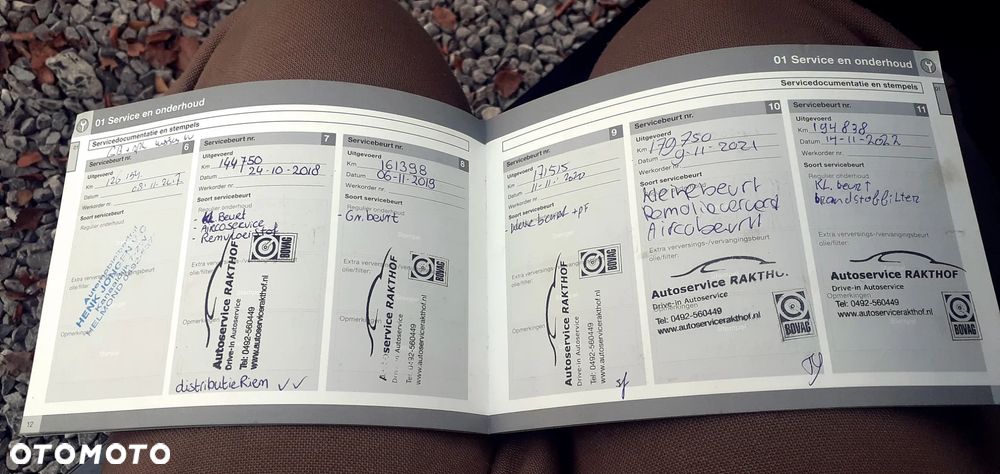 01 Service en onderhoud
Servicedocumentatie en stempels
Servicebeurt nr. 6
Uitgevoerd
Km
Datum
Werkorder nr.
Soort servicebeurt
Regulier onderhoud
Extra verversings-/vervangingsbeurt
olie/filter:
Opmerkingen
HELMOND
Servicebeurt nr. 7
Uitgevoerd
Km 144750
Datum 24-10-2018
Werkorder nr.
Soort servicebeurt
Regulier onderhoud
- Kl Beurt
- Aircoservice
- Remvloeistof
Extra verversings-/vervangingsbeurt
olie/filter:
BOVAG
Autoservice RAKTHOF
Drive-in Autoservice
Tel: 0492-560449
www.autoservicerakthof.nl
Opmerkingen
distributieRiem
Servicebeurt nr. 8
Uitgevoerd
Km 161398
Datum 06-11-2019
Werkorder nr.
Soort servicebeurt
Regulier onderhoud
- Gr. beurt
Extra verversings-/vervangingsbeurt
olie/filter:
BOVAG
Autoservice RAKTHOF
Drive-in Autoservice
Tel: 0492-560449
www.autoservicerakthof.nl
Opmerkingen
12
01 Service en onderhoud
Servicedocumentatie en stempels
Servicebeurt nr. 9
Uitgevoerd
Km 171515
Datum 11-11-2020
Werkorder nr.
Soort servicebeurt
Regulier onderhoud
- kleine beurt + pf
Extra verversings-/vervangingsbeurt
olie/filter:
BOVAG
Autoservice RAKTHOF
Drive-in Autoservice
Tel: 0492-560449
www.autoservicerakthof.nl
Opmerkingen
Servicebeurt nr. 10
Uitgevoerd
Km 179750
Datum 9-11-2021
Werkorder nr.
Soort servicebeurt
Regulier onderhoud
Kleine beurt
Aircobeurt
Extra verversings-/vervangingsbeurt
olie/filter:
Autoservice RAKTHOF
Drive-in Autoservice
Tel: 0492-560449
www.autoservicerakthof.nl
Opmerkingen
Stempel
BOVAG
Servicebeurt nr. 11
Uitgevoerd
Km 194838
Datum 14-11-2022
Werkorder nr.
Soort servicebeurt
Regulier onderhoud
KL. beurt
brandstoffilter
Extra verversings-/vervangingsbeurt
olie/filter:
Autoservice RAKTHOF
Drive-in Autoservice
Tel: 0492-560449
www.autoservicerakthof.nl
Opmerkingen
Stempel
BOVAG
OTOMOTO